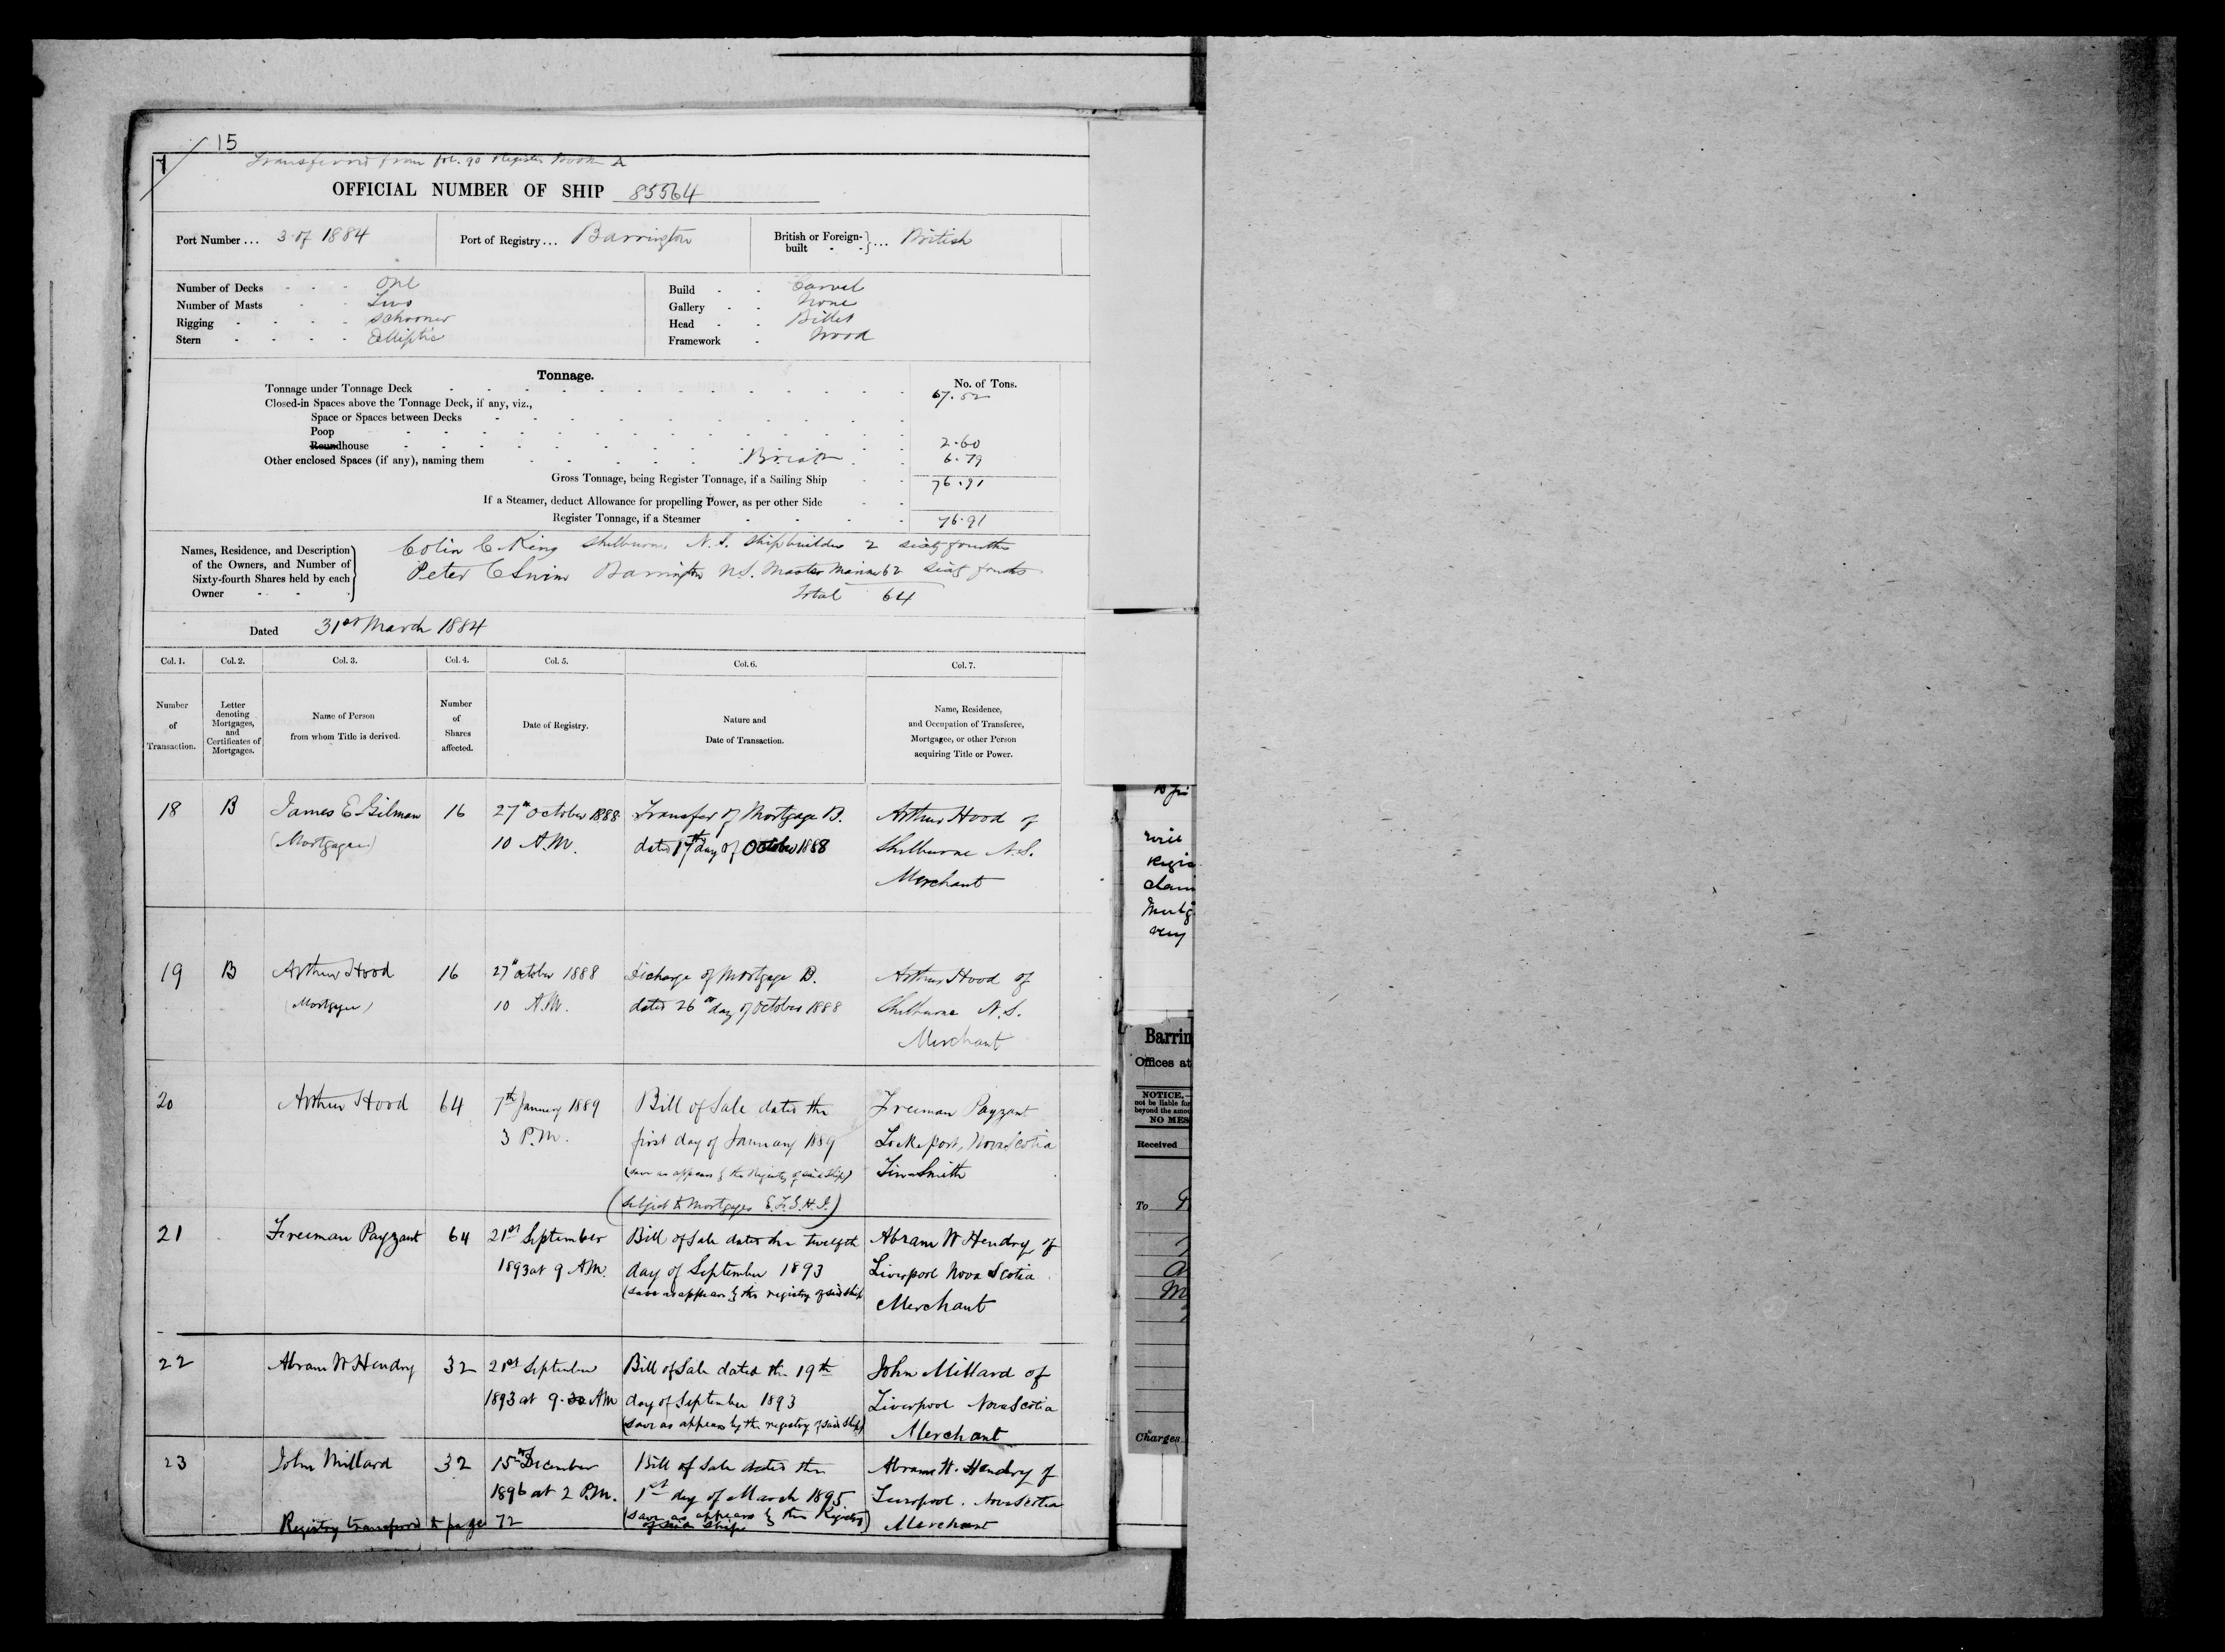 15
Transferred from fol. 90 Register Book A
OFFICIAL NUMBER OF SHIP 85564
Port Number... 3 of 1884 Port of Registry... Barrington British or Foreign-built - -}... British
Number of Decks - - - One Build - - Carvel
Number of Masts - - Two Gallery - - None
Rigging - - - - Schooner Head - - Billet
Stern - - - - Elliptic Framework - Wood
Tonnage.
No. of Tons.
Tonnage under Tonnage Deck 67.52
Closed-in Spaces above the Tonnage Deck, if any, viz.,
Space or Spaces between Decks
Poop
Roundhouse 2.60
Other enclosed Spaces (if any), naming them Break 6.79
Gross Tonnage, being Register Tonnage, if a Sailing Ship 76.91
If a Steamer, deduct Allowance for propelling Power, as per other Side
Register Tonnage, if a Steamer 76.91
Names, Residence, and Description of the Owners, and Number of Sixty-fourth Shares held by each Owner
Colin C King Shelburne, N.S. Shipbuilder 2 sixty fourths
Peter C Swim Barrington N.S. Master Mariner 62 sixty fourths
Total 64
Dated 31st March 1884
Col. 1. Col. 2. Col. 3. Col. 4. Col. 5. Col. 6. Col. 7.
Number of Transaction.
Letter denoting Mortgages, and Certificates of Mortgages.
Name of Person from whom Title is derived.
Number of Shares affected.
Date of Registry.
Nature and Date of Transaction.
Name, Residence, and Occupation of Transferee, Mortgagee, or other Person acquiring Title or Power.
18 B James E Gilman 16 27th October 1888 Transfer of Mortgage B. Arthur Hood of
(Mortgagee) 10 A.M. dated 17th day of October 1888 Shelburne N.S.
Merchant
19 B Arthur Hood 16 27th October 1888 Discharge of Mortgage B. Arthur Hood of
(Mortgagee) 10 A.M. dated 26th day of October 1888 Shelburne N.S.
Merchant
20 Arthur Hood 64 7th January 1889 Bill of Sale dated the Freeman Payzant
3 P.M. first day of January 1889 Lockeport, Nova Scotia
(save as appears by the Registry of said Ship) Tinsmith
(subject to Mortgages E.F.G.H.I.)
21 Freeman Payzant 64 21st September Bill of Sale dated the twelfth Abram W Hendry of
1893 at 9 AM. day of September 1893 Liverpool Nova Scotia
(save as appears by the registry of said ship Merchant
22 Abram W Hendry 32 21st September Bill of Sale dated the 19th John Millard of
1893 at 9.30 AM day of September 1893 Liverpool Nova Scotia
(save as appears by the registry of said ship) Merchant
23 John Millard 32 15th December Bill of Sale dated the Abram W. Hendry of
1896 at 2 P.M. 1st day of March 1895 Liverpool. Nova Scotia
(save as appears by the Registry of said ship) Merchant
Registry transferred to page 72
Regis
claim
very
Barrin
Offices at
NOTICE.-
not be liable for
beyond the amou
NO MES
Received
To
Charges